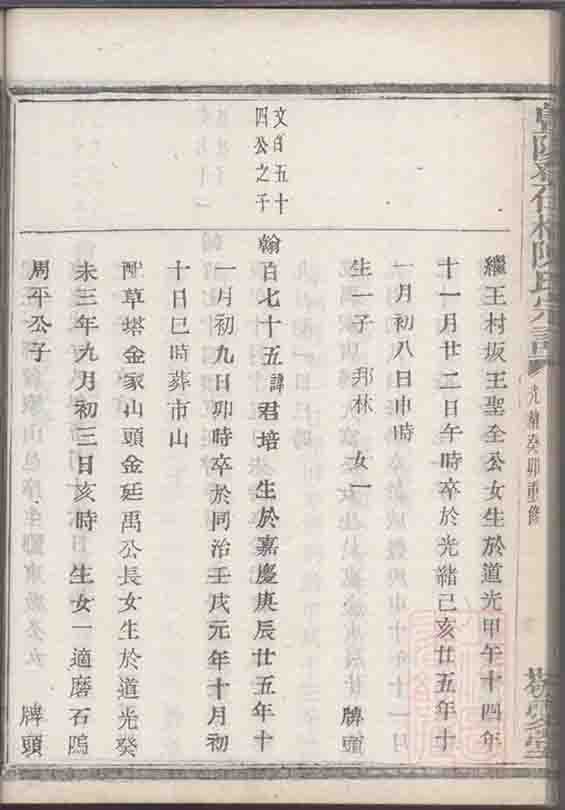 陳氏宗譜
光緒癸卯重修
繼王村坂王聖全公女生於道光甲午十四年
十一月廿二日午時卒於光緒己亥廿五年十
一月初八日申時
生一子 邦林 女一 牌頭
文百五十
四公之子
翰百七十五諱君培 生於嘉慶庚辰廿五年十
一月初九日卯時卒於同治壬戌元年十月初
十日巳時葬市山
配草塔金家山頭金廷禹公長女生於道光癸
未三年九月初三日亥時 生女一適磨石塢
周平公子 牌頭